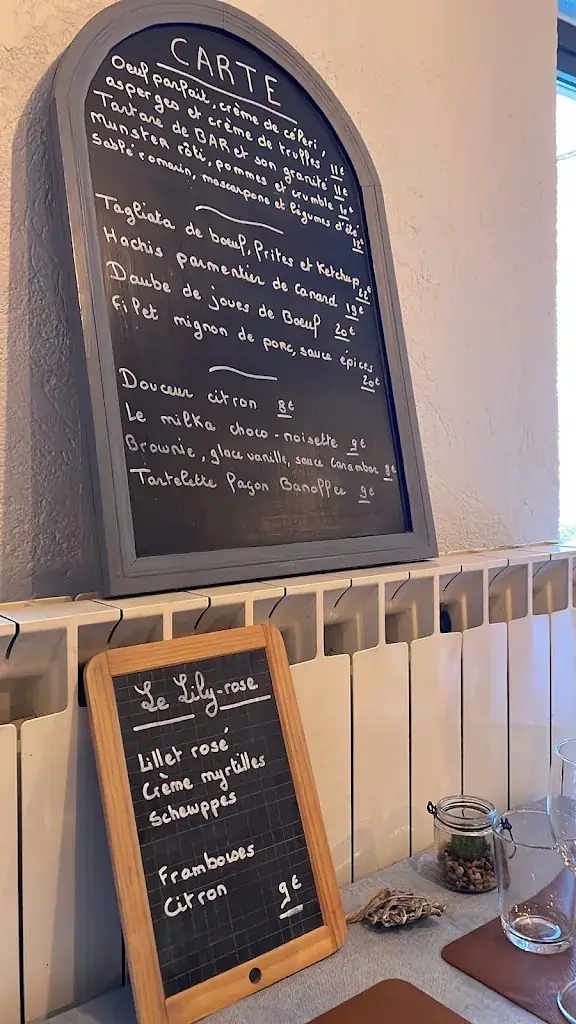 CARTE
Oeuf parfait, crème de céleri,
asperges et crème de truffes 11€
Tartare de BAR et son granité 11€
Munster rôti, pommes et crumble 10€
Sablé romarin, mascarpone et légumes d'été
12€
Tagliata de boeuf, frites et Ketchup 22€
Hachis parmentier de Canard 19€
Daube de joues de Boeuf 20€
Filet mignon de porc, sauce épices
20€
Douceur citron 8€
Le milka choco-noisette 9€
Brownie, glace vanille, sauce Carambar 8€
Tartelette façon Banoffee 9€
Le Lily-rose
Lillet rosé
Crème myrtilles
Schewppes
Framboises
Citron 9€